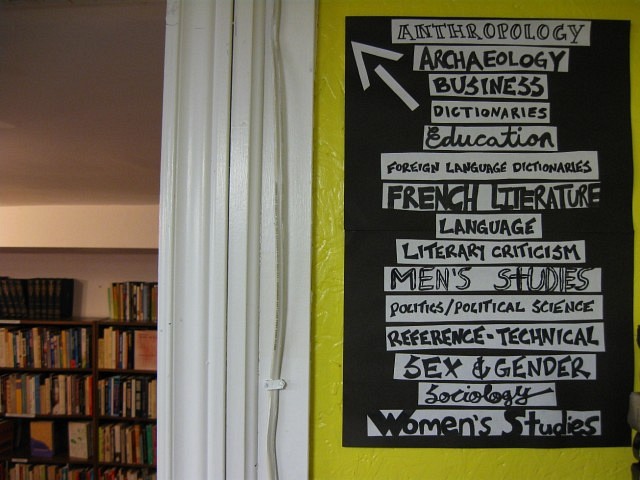 ANTHROPOLOGY
ARCHAEOLOGY
BUSINESS
DICTIONARIES
Education
FOREIGN LANGUAGE DICTIONARIES
FRENCH LITERATURE
LANGUAGE
LITERARY CRITICISM
MEN'S STUDIES
POLITICS/POLITICAL SCIENCE
REFERENCE-TECHNICAL
SEX & GENDER
Sociology
Women's Studies